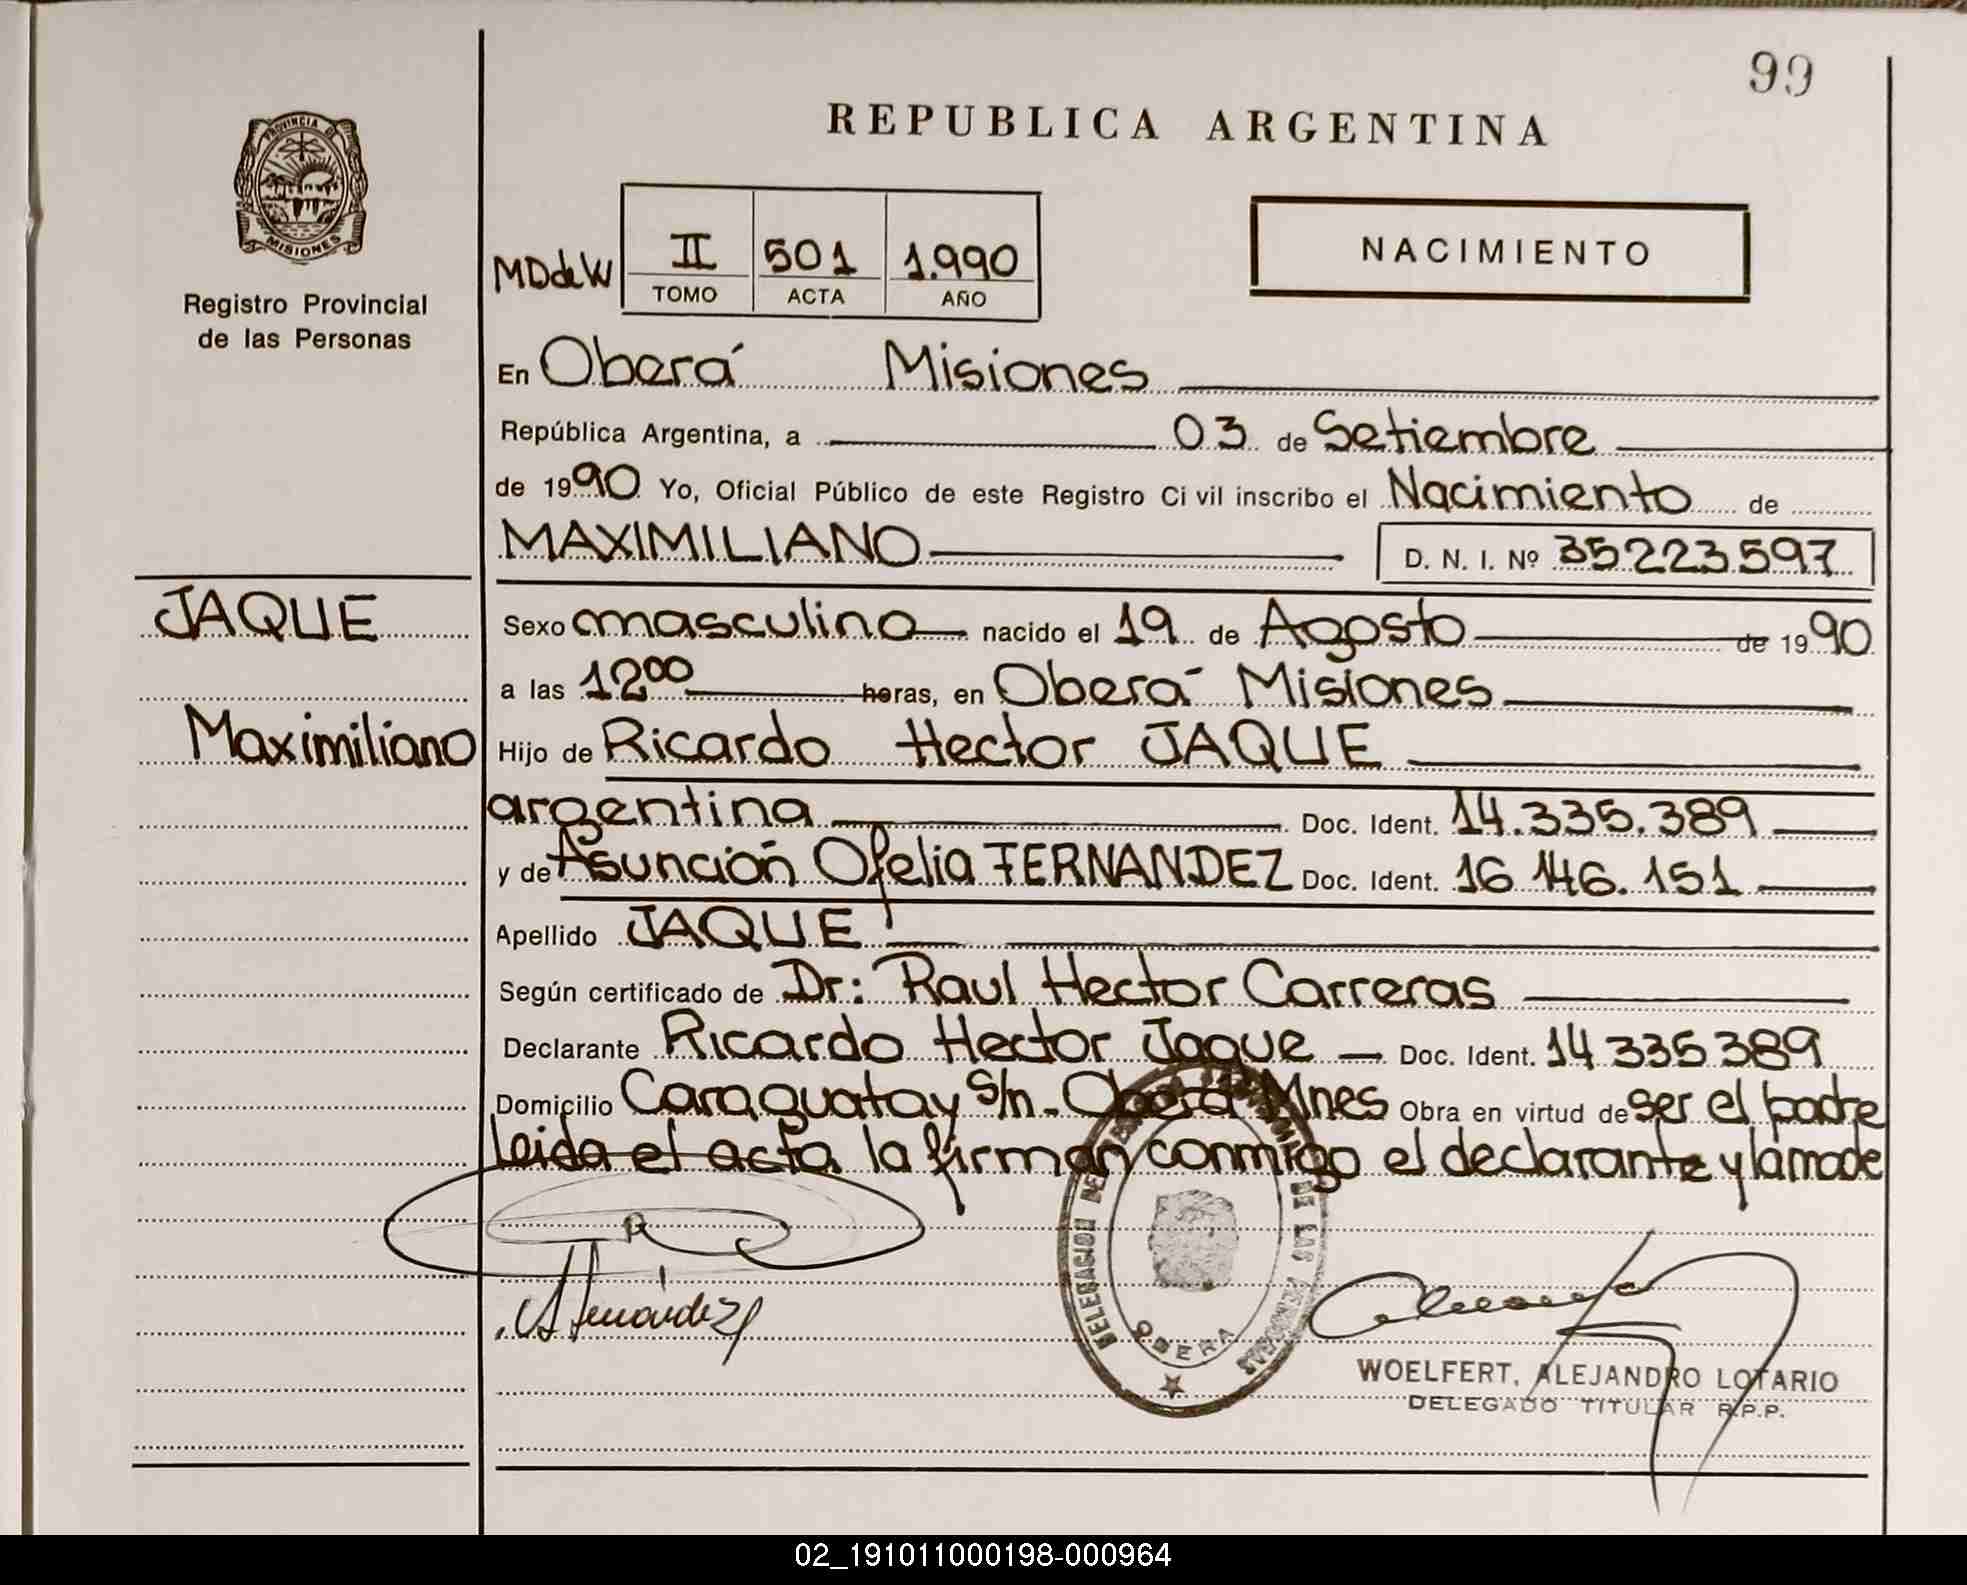 99
REPUBLICA ARGENTINA
PROVINCIA DE
MISIONES
Registro Provincial
de las Personas
NACIMIENTO
MDdeW II 501 1.990
TOMO ACTA AÑO
En Oberá Misiones
República Argentina, a 03 de Setiembre
de 1990 Yo, Oficial Público de este Registro Civil inscribo el Nacimiento de
MAXIMILIANO D. N. I. Nº 35223597
JAQUE
Maximiliano
Sexo masculino nacido el 19 de Agosto de 1990
a las 12⁰⁰ horas, en Oberá Misiones
Hijo de Ricardo Hector JAQUE
argentina Doc. Ident. 14.335.389
y de Asunción Ofelia FERNANDEZ Doc. Ident. 16 146.151
Apellido JAQUE
Según certificado de Dr: Raul Hector Carreras
Declarante Ricardo Hector Jaque Doc. Ident. 14 335 389
Domicilio Caraguatay s/n - Oberá Mnes Obra en virtud de ser el padre
leida el acta la firman conmigo el declarante y la made
DELEGACION DE DE LAS PERSONAS
OBERA
WOELFERT, ALEJANDRO LOTARIO
DELEGADO TITULAR R.P.P.
02_191011000198-000964